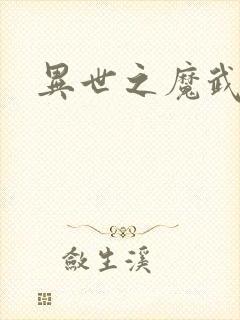 異世之魔武
敘生溪